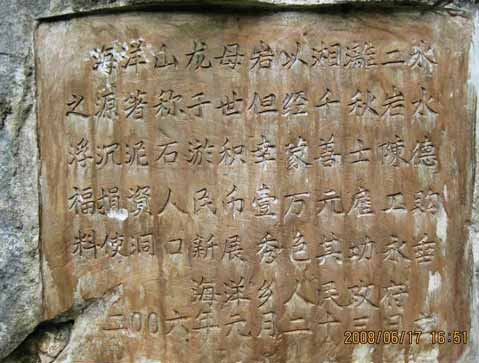 海洋山龙母岩以湘灕二水
之源著称于世但经千秋岩水
浮沉泥石淤积幸蒙善士陳德
福捐資人民币壹万元雇工助
料使洞口新展秀色其功永垂
海洋乡人民政府
二00六年元月二十三日
2008/06/17 16:51